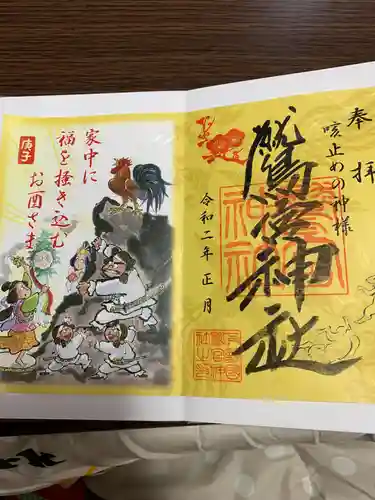 奉拝
咳止めの神様
鷲宮神社
令和二年正月
庚子
家中に
福を掻き込む
お酉さま